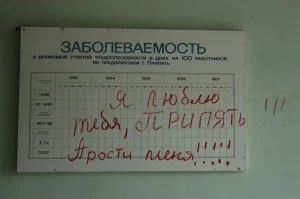 ЗАБОЛЕВАЕМОСТЬ
С ВРЕМЕННОЙ УТРАТОЙ ТРУДОСПОСОБНОСТИ В ДНЯХ НА 100 РАБОТНИКОВ
ПО ПРЕДПРИЯТИЯМ Г. ПРИПЯТЬ
Я люблю
тебя, ПРИПЯТЬ !!!
Прости меня!!!!!
СССР